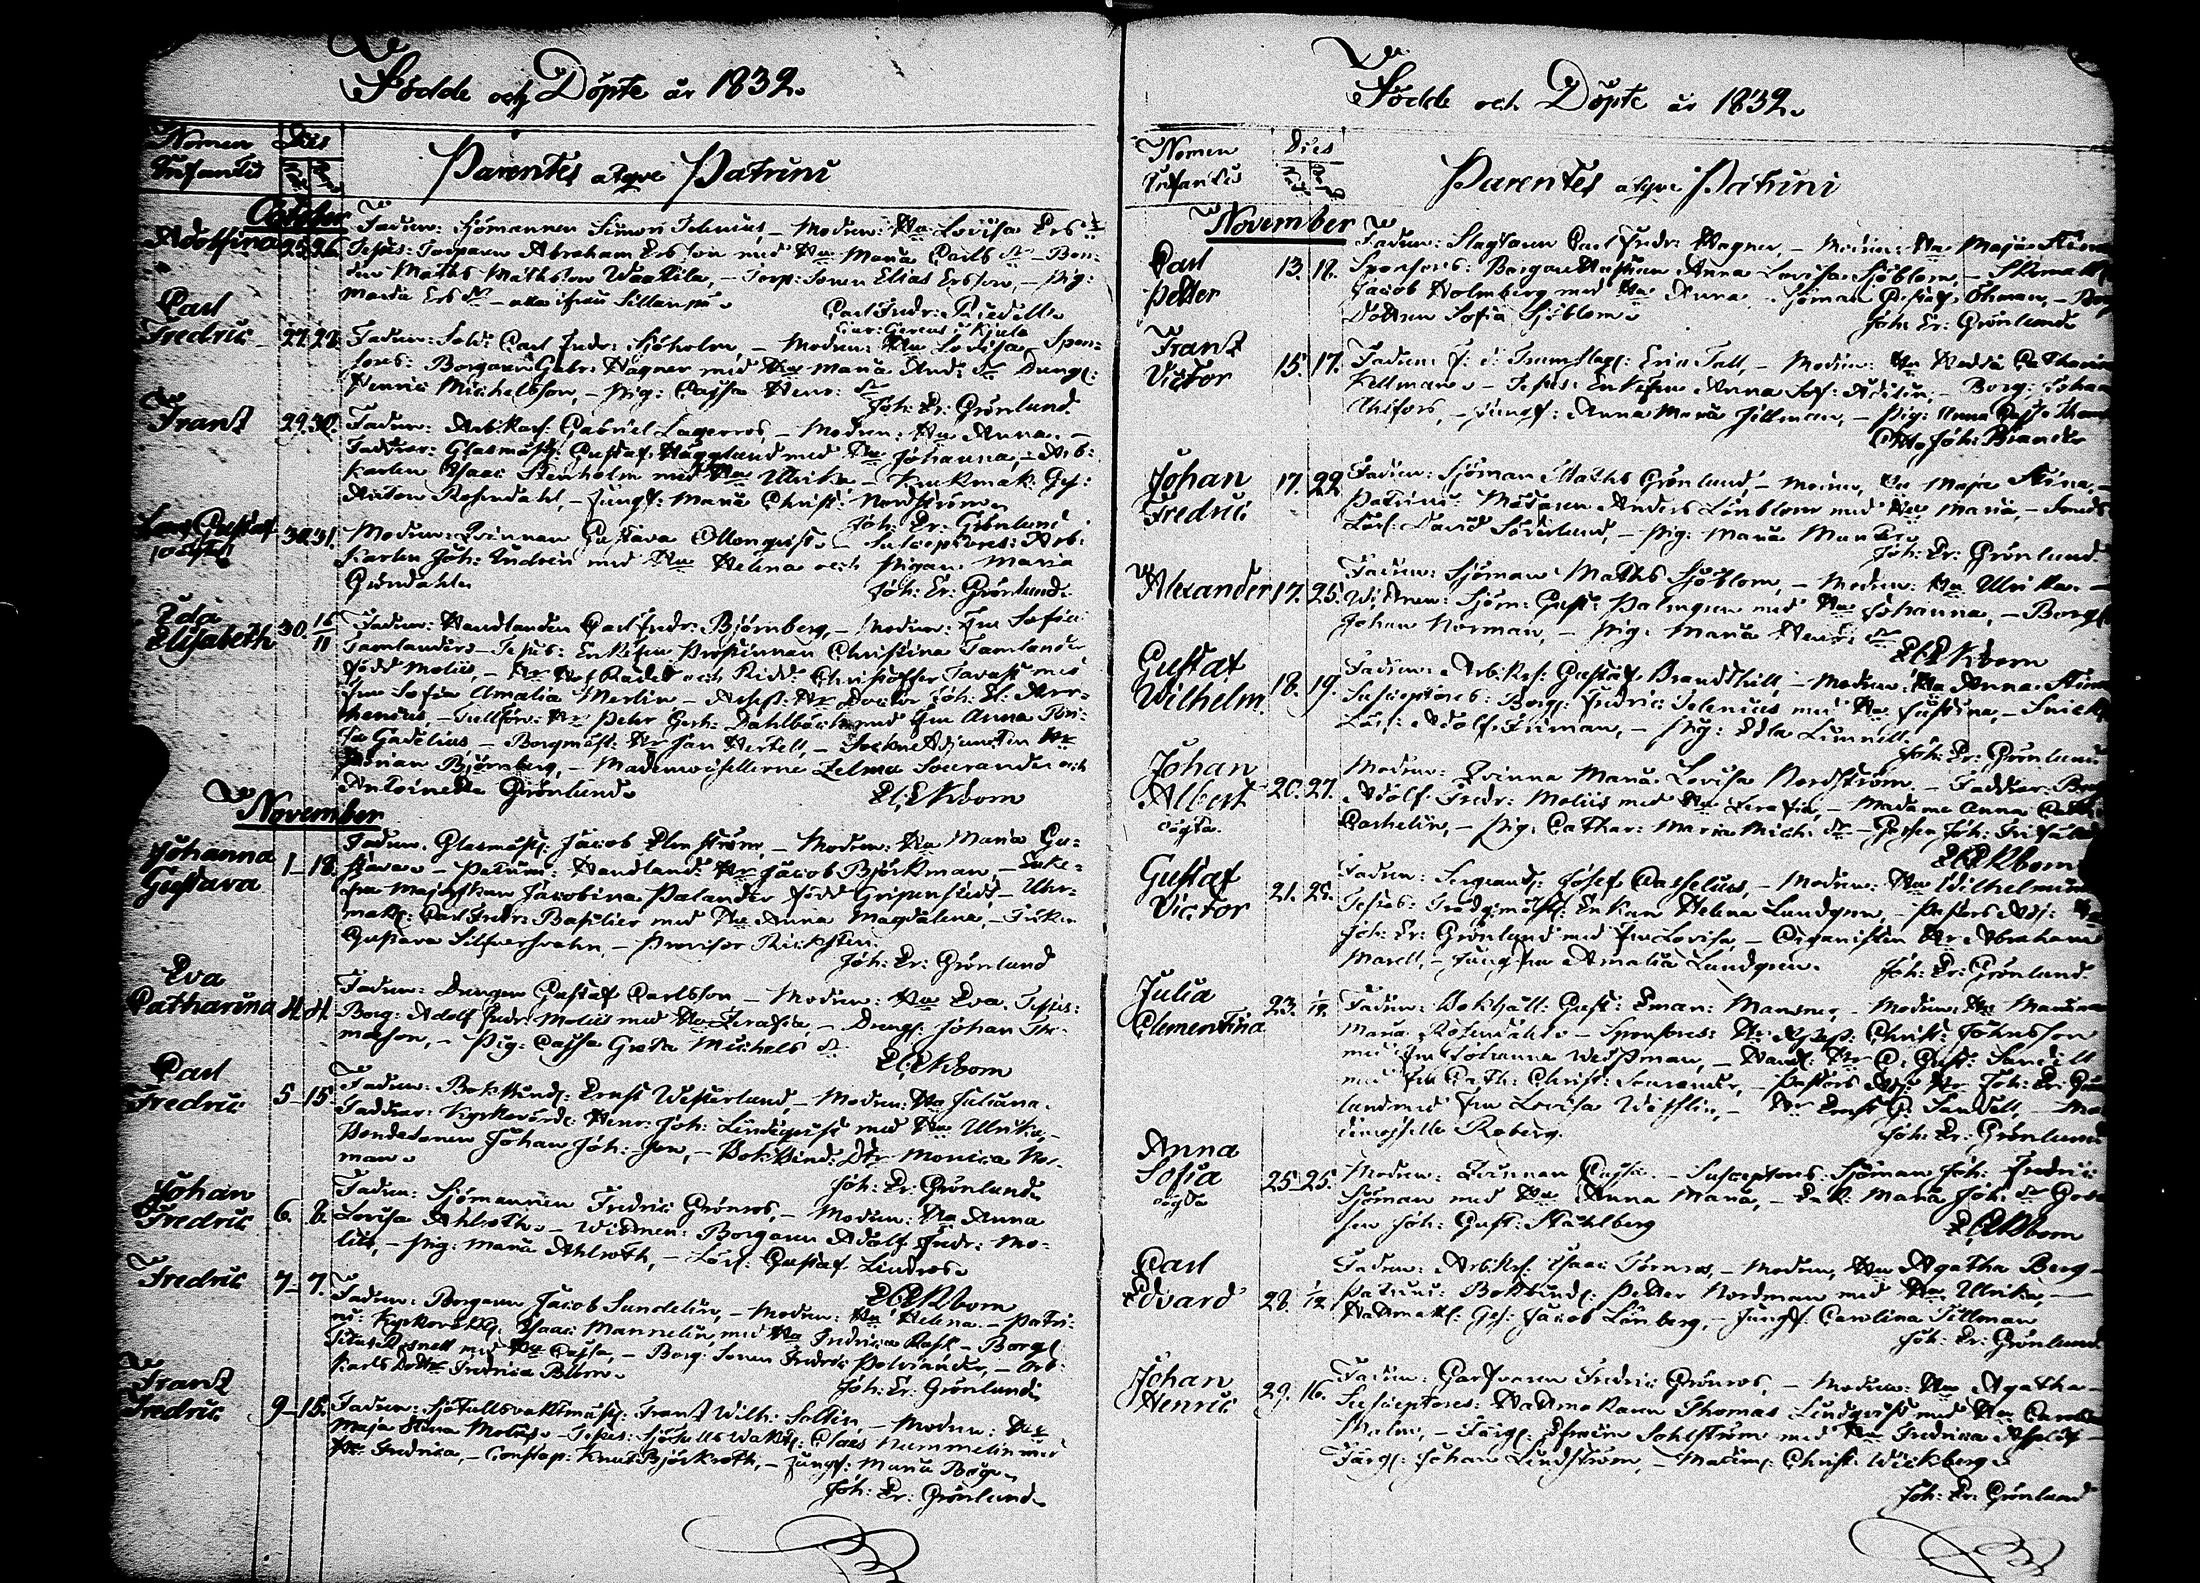 Födde och Döpte år 1832.
Nomen Dies
Infantis
Parentes atqve Patrini
October
Adolfina 25. 26. Fadren: Sjömannen Simon Selenius, – Modren: Hu Lovisa Ers dr
Testes: Torparn Abraham Ersson med Hu Maria Carls dr – Bon-
den Matts Mattsson Waattila, – Torp: Sonen Elias Ersson, – Pig:
Maria Ers dr – alla ifrån
Carl Fredr: Riedell
Carl
Fredric 27. 28. Fadren: Sold: Carl Fredr: Sjöholm, – Modren: Hu Lovisa – Spon-
sores: Borgaren Gabr: Hagner med Hu Maria And: dr Dreng:
Henric Michelsson, – Pig: Cajsa Henr: dr
Joh: Er: Grönlund.
Frans 29. 30. Fadren: Arb:karl: Gabriel Lagerros, – Modren: Hu Anna. –
Faddrar: Glasmäst: Gustaf Hägglund med Hu Johanna, – Arb:
karlen Isaac Stenholm med Hu Ulrika – Krukmak: Ges:
Anton Rosendahl, – Jungf: Maria Christ: Nordström.
Joh: Er: Grönlund
Gustaf
oägta 30. 31. Modren: Qvinnan Gustava Ollonqvist. – Susceptores: Arb:
Karlen Joh: Andsten med Hu Helena och Pigan Maria
Gröndahl.
Joh: Er: Grönlund.
Ida
Elisabeth 30. 16/11 Fadren: Handlanden Carl Fredr: Björnberg, – Modren: Fru Sofia
Tamlander. – Testes: Enkefru Prostinnan Christina Tamlander
född Molin, – Hr HofRådet och Ridd: Christoffer Tavast med
Fru Sofia Amalia Merlin – Assess: Hr Doctor Joh: E: Arr-
henius, – Tullförv: Hr Peter Gerh: Dahlbäck med Fru Anna
Gadelius, – Borgmäst: Hr Jan Hertell, – SockneAdjuncten Hr
Björnberg, – Mademoisellerne Selma Sourander och
Antoinetta Grönlund.
El: Ekbom
November
Johanna
Gustava 1– 18. Fadren: Glasmäst: Jacob Elmström, – Modren: Hu Maria Gu-
stava. – Patrini: Handland: Hr Jacob Björkman, – Enke-
fru Majorskan Jacobina Palander född Gripenstedt, – Uhr-
mak: Carl Fredr: Basilier med Hu Anna Magdalena, – Fröken
Gustava Silfversvahn, – Provisor Rickstein.
Joh: Er: Grönlund
Eva
Catharina 4– 4. Fadren: Drengen Gustaf Carlsson – Modren: Hu Eva. Testes:
Borg: Adolf Fredr: Molin med Hu Serafia, – Drengs: Johan Tho-
masson, – Pig: Cajsa Greta Michels dr
El: Ekbom
Carl
Fredric 5– 15. Fadren: Bokbind: Ernst Westerlund, – Modren: Hu Juliana.
Faddrar: Kyrkovärd: Henr: Joh: Lindqvist med Hu Ulrika, –
Bondesonen Johan Joh: Son, – Bokbind: Dtr Monica Nor-
man.
Joh: Er: Grönlund.
Johan
Fredric 6. 8. Fadren: Sjömannen Fredric Grönros, – Modren: Hu Anna
Lovisa Ahlroth. – Wittnen: Borgaren Adolf Fredr: Mo-
lin, – Pig: Maria Ahlroth, – Lärl: Gustaf Lindros.
El: Ekbom
Fredric 7– 7. Fadren: Borgaren Jacob Sundelin, – Modren: Hu Helena. – Patri-
ni: Kyrkovakt: Isaac Mannelin, med Hu Fredrica Rask – Borg:
Rosnell med Hu Cajsa, – Borg: Sonen Fredric Polviander, – Arb:
karls Dotter Fredrica Blom.
Joh: Er: Grönlund.
Frans
Fredric 9– 15. Fadren: Sjötullsvaktmäst: Frans Wilh: Saltin, – Modren: Hu
Maja Stina Molin. – Testes: Sjötulls Wakt: Claes Hummelin med
Hu Fredrica, – Constap: Knut Björkroth, – Jungf: Maria Berg.
Joh: Er: Grönlund.
Födde och Döpte år 1832.
Nomen Dies
Infantis
Parentes atqve Patrini
November
Carl
Petter 13. 18. Fadren: Slagtaren Carl Fredr: Wagner, – Modren: Hu Maja Stina
Sponsores: Borgar Hustrun Anna Lovisa Sjöblom, –
Jacob Holmberg med Hu Anna. Sjöman Gustaf Öhman, –
Dottren Sofia Sjöblom.
Joh: Er: Grönlund
Frans
Victor 15. 17. Fadren: F: d: Trumslag: Eric Fall, – Modren: Hu Hedda Catharina
Kellman. – Testes: Enkefru Anna Sof: Adelin, – Borg: Johan
Ahlfors, – Jungf: Anna Maria Tillman, – Pig: Anna Cajsa
Otto Joh: Brander
Johan
Fredric 17. 22. Fadren: Sjöman Matts Grönlund, – Modren, Hu Maja Stina. –
Patrini: Målaren Anders Lönblom med Hu Maria, –
Lärl: David Söderlund, – Pig: Maria Munter.
Joh: Er: Grönlund.
Alexander 17. 25. Fadren: Sjöman Matts Sjöblom, – Modren: Hu Ulrika. –
Wittnen: Sjöm: Gust: Palmgren med Hu Johanna, – Borg:
Johan Norman, – Pig: Maria Henrs dr
El: Ekbom
Gustaf
Wilhelm 18. 19. Fadren: Arb:kl: Gustaf Brandthill, – Modren: Hu Anna Stina
Susceptores: Borg: Fredric Selenius med Hu Justina, –
Lärl: Adolf Friman, – Pig: Edla Limnell.
Joh: Er: Grönlund
Johan
Albert
oägta. 20. 27. Modren: Qvinna Maria Lovisa Nordström. – Faddrar:
Adolf Fredr: Molin med Hu Serafia, – Madame Anna
Cashelin, – Pig: Cathar: Maria Mich: dr – Gossen Joh:
El: Ekbom
Gustaf
Victor 21. 25. Fadren: Sergeant: Josef Casselius, – Modren: Hu Wilhelmina
Testes: Trädg:mäst: Enkan Helena Lundgren, – Pastors Adj: Hr
Joh: Er: Grönlund med Fru Lovisa, – Organisten Hr Abraham
Marell, – Jungfru Amalia Lundgren.
Joh: Er: Grönlund.
Julia
Clementina 23. Fadren: Bokhåll: Gust: Eman: Mansner, – Modren: Hu
Maria Rosendahl. – Sponsores: Hr Christ: Johnsson
med Fru Johanna Widpman, – Hand: Hr C: Gust: Sandell
med Fru Cath: Christ: Sourander, – Pastors Adj: Hr Joh: Er: Grön-
lund med Fru Lovisa Wäthlin, – Hr Ernst G: Sandell, – Ma-
demoiselle Roberg.
Joh: Er: Grönlund
Anna
Sofia
oägta 25. 25. Modren: Qvinnan Cajsa. – Susceptores: Sjöman Joh: Fredric
Sjöman med Hu Anna Maria, – Maria Joh: dr
sen Joh: Gust: Ståhlberg
El: Ekbom
Carl
Edvard 28. Fadren: Arb:kl: Isaac Törnros, – Modren, Hu Agatha Berg –
Patrini: Bokbind: Petter Nordman med Hu Ulrika, –
Hattmak: Ges: Jacob Lönberg, – Jungf: Carolina Tillman
Joh: Er: Grönlund
Johan
Henric 29. 16. Fadren: Garfvaren Fredric Grönros, – Modren: Hu Agatha –
Susceptores: Hattmakaren Thomas Lindqvist med Hu
Malm, – Färg: Efraim Sahlström med Hu Fredrica Asplöf –
Färg: Johan Lindström, – Madem: Christ: Wickberg.
Joh: Er: Grönlund